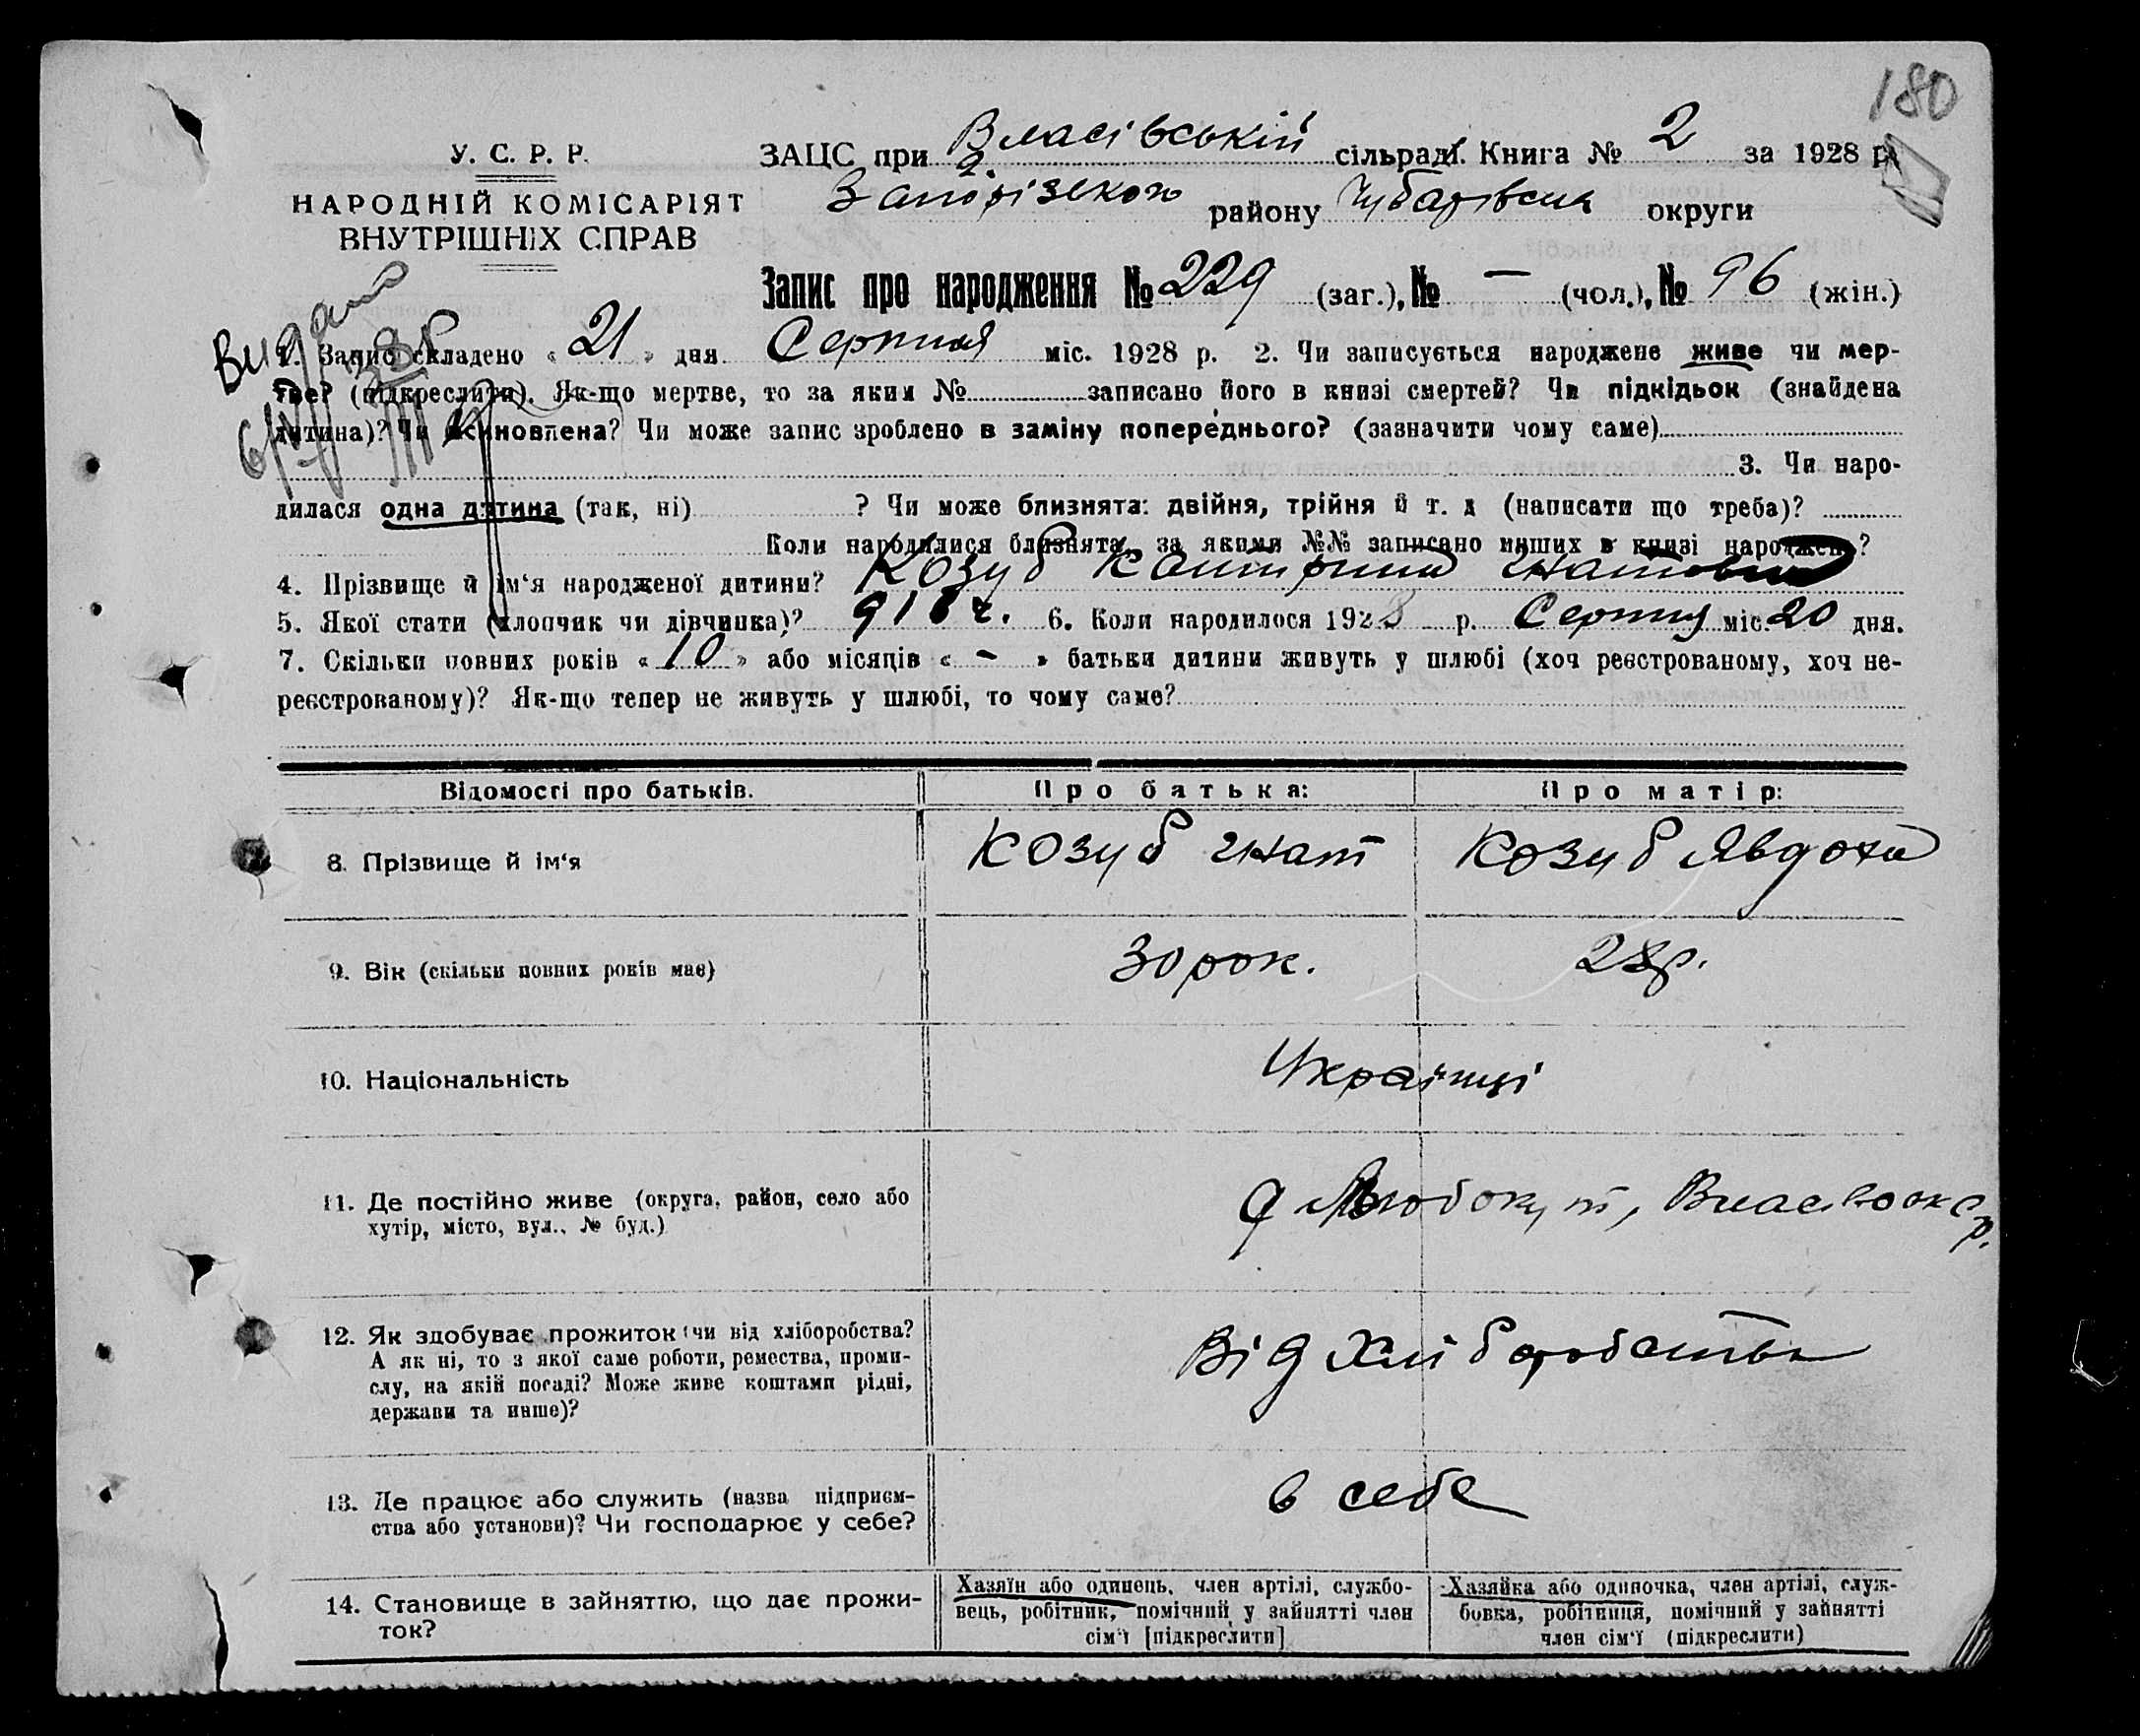 180
У. С. Р. Р.
НАРОДНІЙ КОМІСАРІЯТ
ВНУТРІШНІХ СПРАВ
ЗАЦС при Власівській сільраді. Книга № 2 за 1928 р.
району округи
Запис про народження № 229 (заг.), № — (чол.), № 96 (жін.)
Видано
1. Запис складено « 21 » дня Серпня міс. 1928 р. 2. Чи записується народжене живе чи мер-
тве? (підкреслити). Як-що мертве, то за яким № записано його в книзі смертей? Чи підкідьок (знайдена
дитина)? Чи всиновлена? Чи може запис зроблено в заміну попереднього? (зазначити чому саме)
3. Чи наро-
дилася одна дитина (так, ні) ? Чи може близнята: двійня, трійня й т. д (написати що треба)?
Коли народилися близнята, за якими №№ записано инших в книзі народжень?
4. Прізвище й ім‘я народженої дитини? Козуб Катрина Гнатовна
5. Якої стати (хлопчик чи дівчинка)? дівч. 6. Коли народилося 1928 р. Серпня міс. 20 дня.
7. Скільки повних років « 10 » або місяців « - » батьки дитини живуть у шлюбі (хоч реєстрованому, хоч не-
реєстрованому)? Як-що тепер не живуть у шлюбі, то чому саме?
Відомості про батьків. Про батька: Про матір:
8. Прізвище й ім‘я Козуб Гнат Козуб Явдоха
9. Вік (скільки повних років має) 30 рок. 28 р.
10. Національність Українці
11. Де постійно живе (округа, район, село або
хутір, місто, вул., № буд.)
12. Як здобуває прожиток: чи від хліборобства?
А як ні, то з якої саме роботи, ремества, проми-
слу, на якій посаді? Може живе коштами рідні,
держави та инше)?
Від Хліборобства
13. Де працює або служить (назва підприєм-
ства або установи)? Чи господарює у себе?
в себе
14. Становище в зайняттю, що дає прожи-
ток?
Хазяїн або одинець, член артілі, службо-
вець, робітник, помічний у зайнятті член
сім‘ї [підкреслити]
Хазяйка або одиночка, член артілі, служ-
бовка, робітниця, помічний у зайнятті
член сім‘ї (підкреслити)